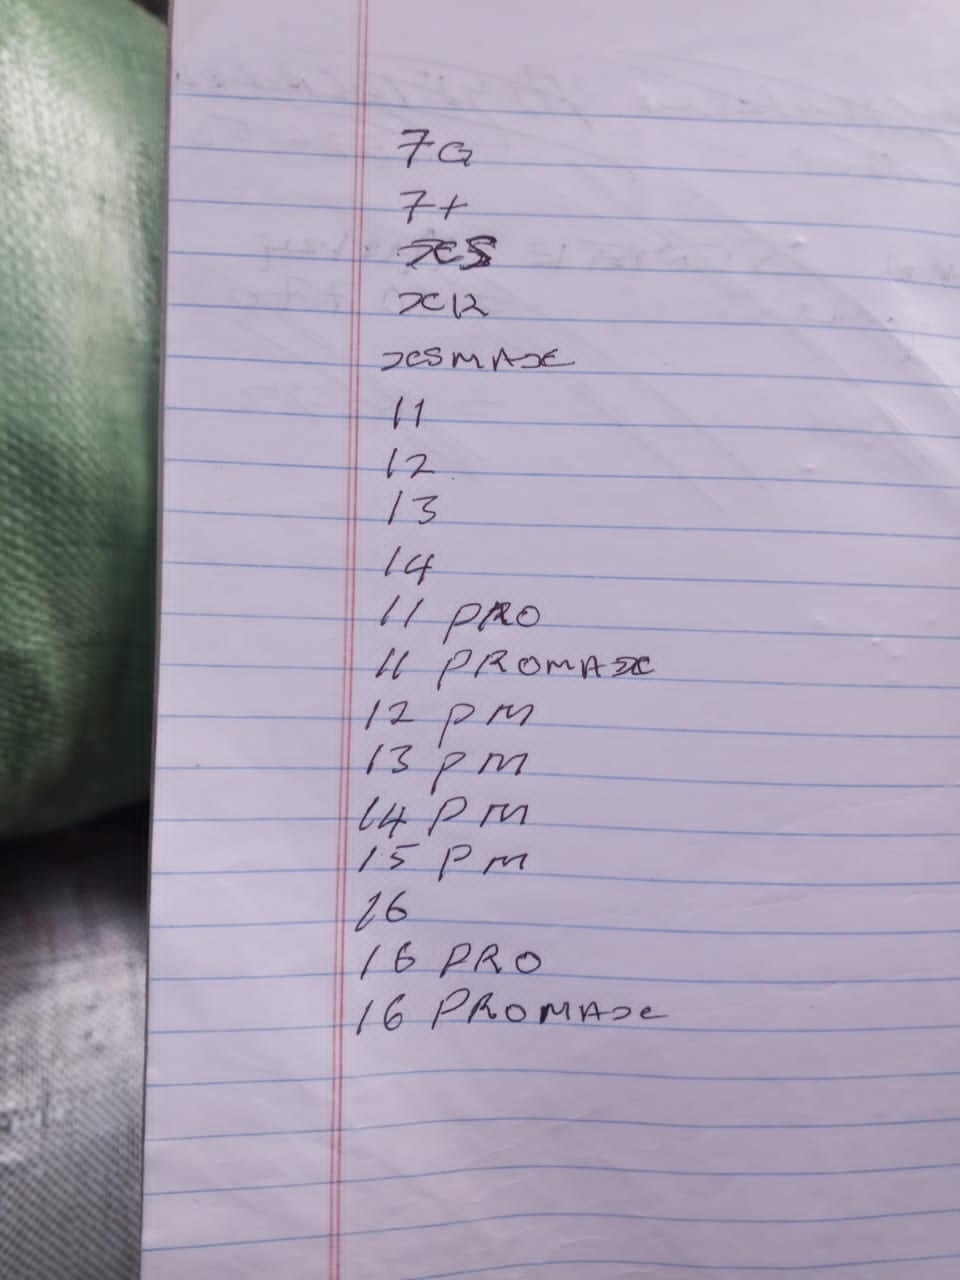 7G
7+
XS
XR
XSMAX
11
12
13
14
11 PRO
11 PROMAX
12 PM
13 PM
14 PM
15 PM
16
16 PRO
16 PROMAX